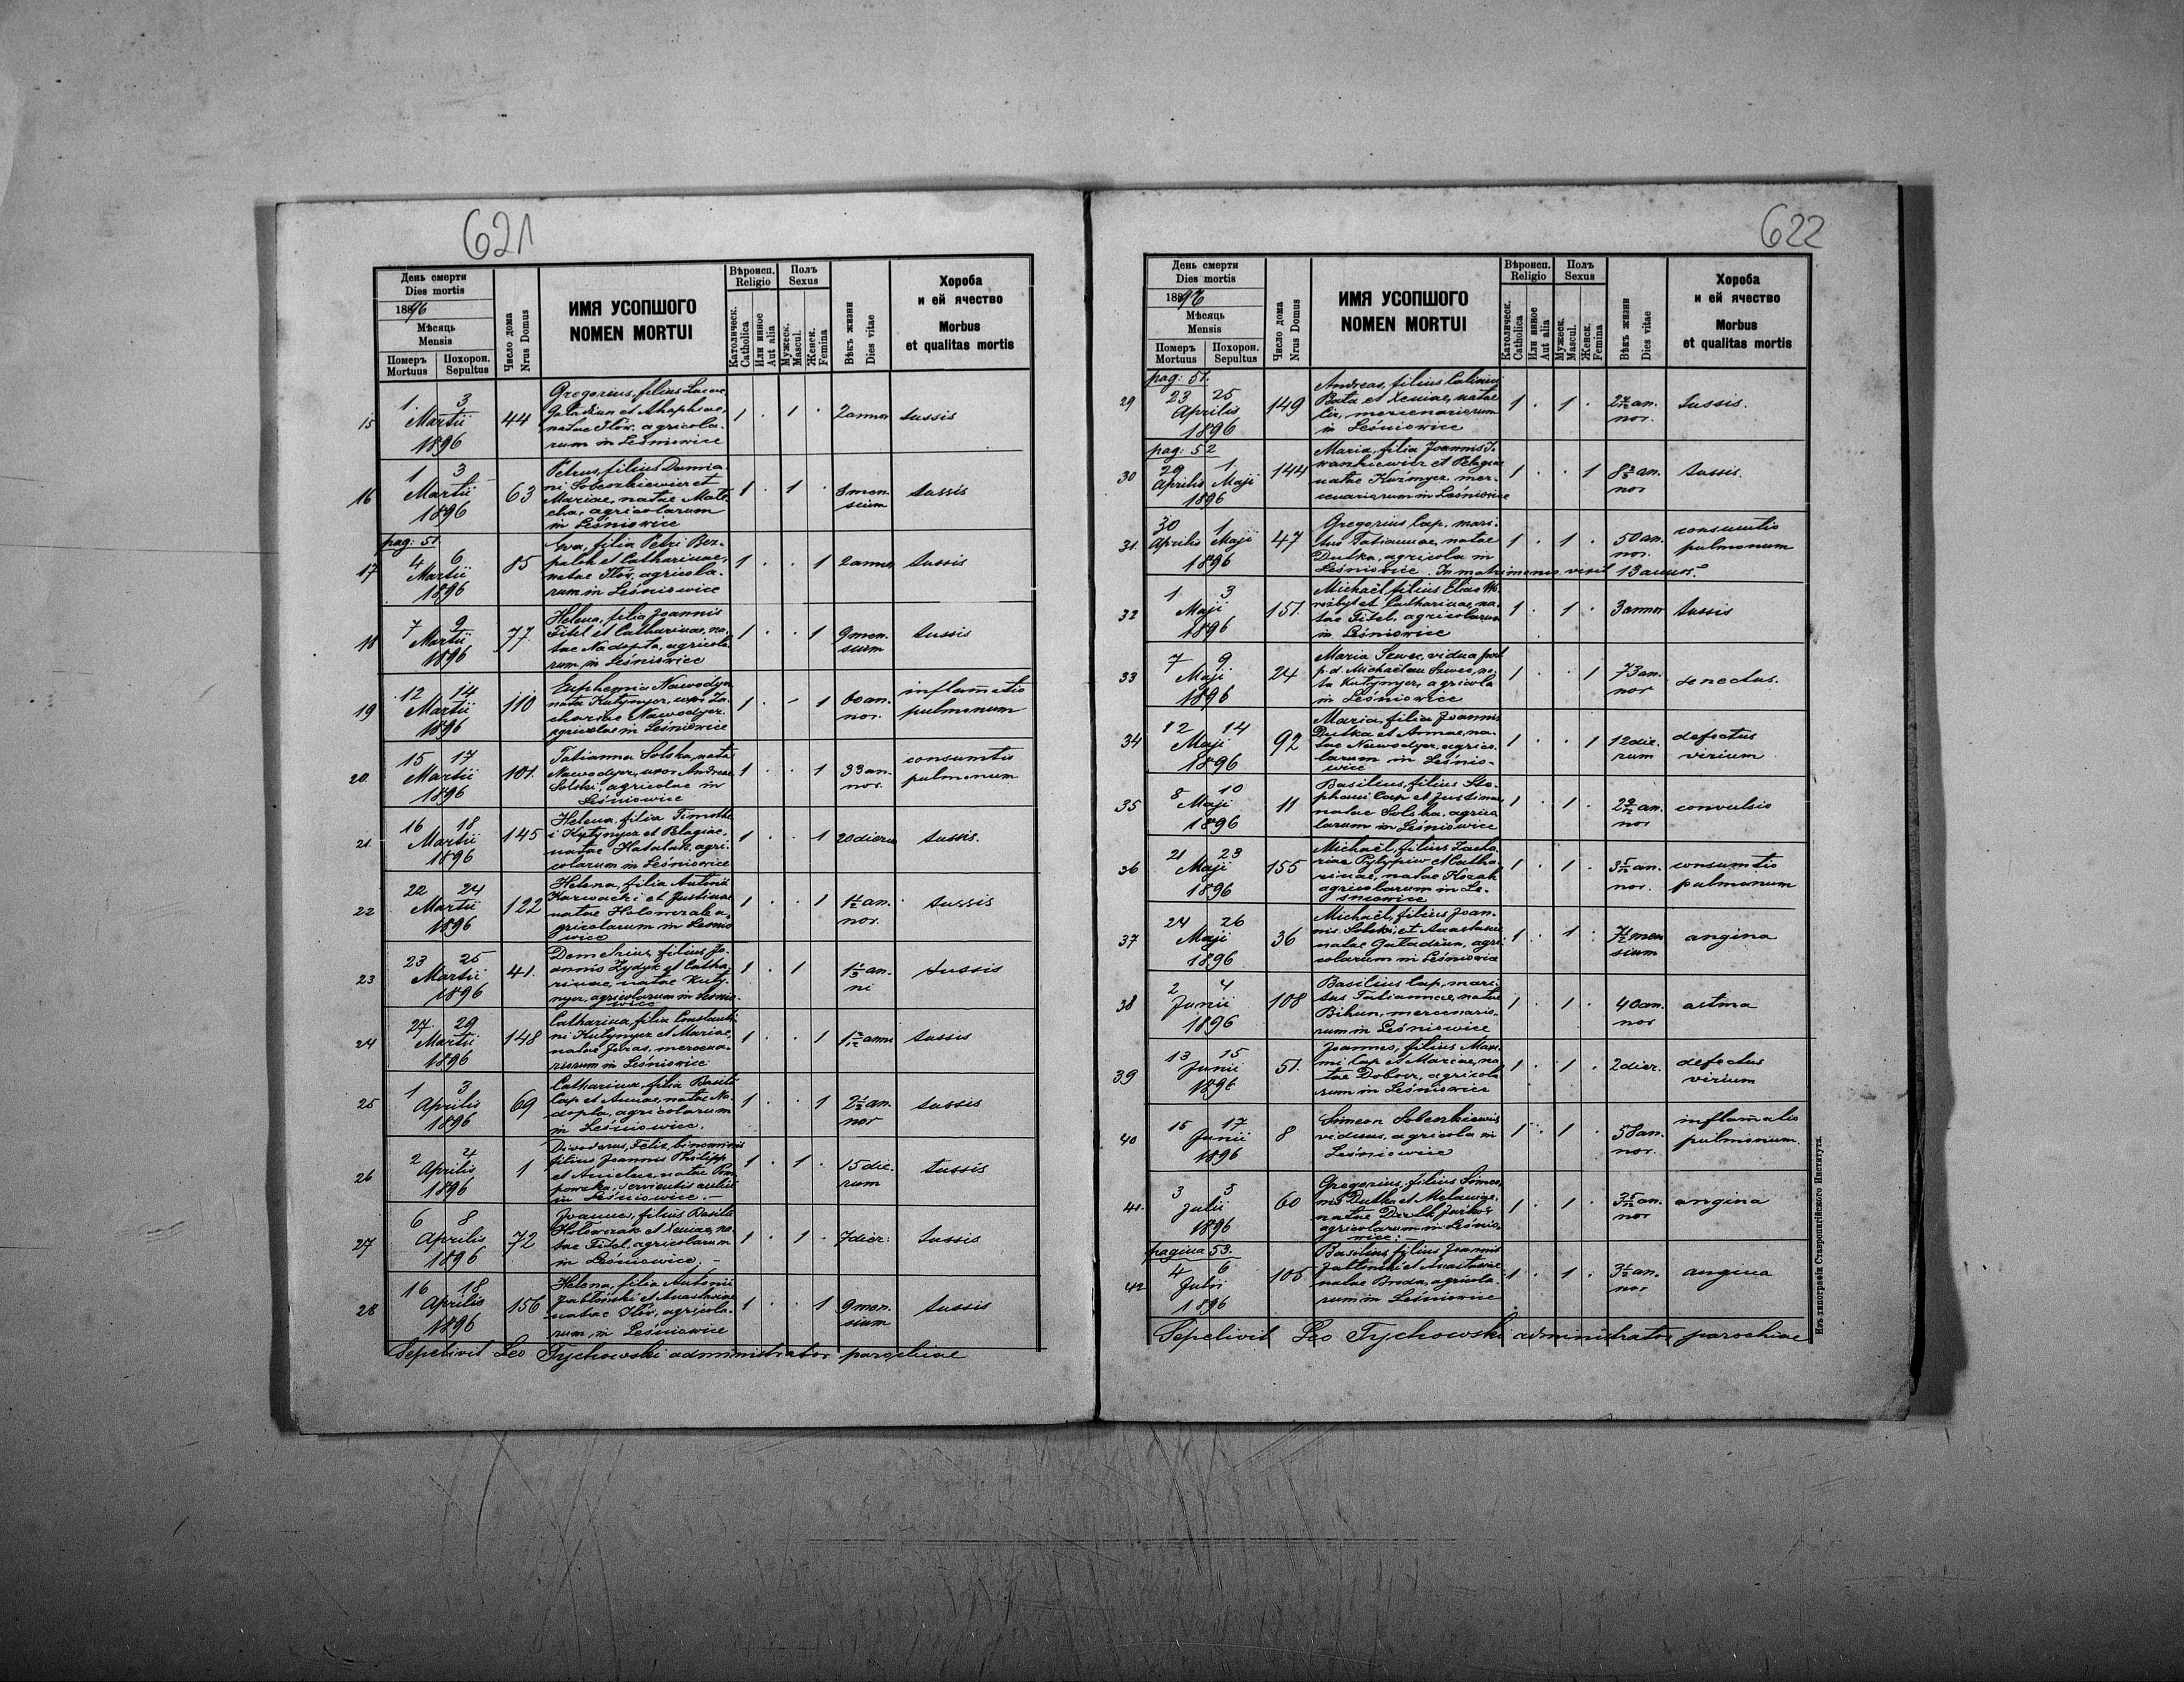 621
День смерти
Dies mortis
1896
Мѣсяць
Mensis
Померъ
Mortuus
Похорон.
Sepultus
Число дома
Nrus Domus
ИМЯ УСОПШОГО
NOMEN MORTUI
Вѣроисп.
Religio
Католическ.
Catholica
Или инное
Aut alia
Полъ
Sexus
Мужеск.
Mascul.
Женск.
Femina
Вѣкъ жизни
Dies vitae
Хороба
и ей ячество
Morbus
et qualitas mortis
15
1. 3
Martii
1896
44
Gregorius, filius Lucae
et
natae Ilów, agricola-
rum in Leśniowice
1 . 1 .
2 annor
tussis
16
1 3
Martii
1896
63
Petrus, filius Damia-
ni Sobeszkiewicz et
Mariae, natae
agricolarum
in Leśniowice
1 . 1 .
men-
sium
tussis
pag: 51.
17
4 6
Martii
1896
85
Eva, filia Petri Bez-
palek et Catharinae,
natae Ilów, agricola-
rum in Leśniowice
1 . . 1
2 annor
tussis
18
7 9
Martii
1896
77.
Helena, filia Joannis
Fitel et Catharinae, na-
tae Nadopta, agricola
rum in Leśniowice
1 . . 1
9 men-
sium
tussis
19
12 14
Martii
1896
110
Euphemia Nawodyn
nata Kutynycz, uxor Za-
chariae Nawodycz.
agricolae in Leśniowice
1 . - 1
60 an-
nor.
inflam̄atio
pulmonum
20.
15 17
Martii
1896
101.
Tatianna Solska, nata
Nawodycz, uxor Andreae
Solski, agricolae in
Leśniowice
1 . . 1
33 an-
nor.
consumtio
pulmonum
21.
16 18
Martii
1896
145
Helena, filia Timothe
i Kutynycz et Pelagiae,
natae Hatalak, agri-
colarum in Leśniowice
1 . . 1
20 dierum
tussis.
22
22 24
Martii
1896
122
Helena, filia Antonii
Karwacki et Justinae
natae Holowczak a-
gricolarum in Leśnio
wice
1 . . 1
1½ an-
nor.
tussis
23
23 25
Martii
1896
41.
Demetrius, filius Jo-
annis Zydyk et Catha-
rinae, natae Kuty-
nycz, agricolarum in Leśnio-
wice
1 . 1
an-
ni
tussis
24
27 29
Martii
1896
148
Catharina, filia Constanti
ni Kutynycz et Mariae,
natae Juras, mercena-
riorum in Leśniowice
1 . . 1
anni
tussis
25
1 3
Aprilis
1896
69
Catharina, filia Basilii
Cap et Annae, natae Na-
dopta, agricolarum
in Leśniowice.
1 . . 1
2½ an-
nor
tussis
26
2 4
Aprilis
1896
1
Divodorus, Felix, binominis
filius Joannis Philipp
et Anielae natae
servientis aulici
in Leśniowice. -
1 . 1 .
15 die-
rum
tussis
27
6 8
Aprilis
1896
72
Joannes, filius Basilii
Holowczak et Xeniae, na-
tae Fitel, agricolarum
in Leśniowice. -
1 . 1 .
7 dier:
tussis
28
16 18
Aprilis
1896
156
Helena, filia Antonii
Jabłoński et Anastasiae
natae Ilów, agricola-
rum in Leśniowice
1 . . 1
9 men-
sium
tussis
Sepelivit Leo Tychowski administrator parochiae
622
День смерти
Dies mortis
1896
Мѣсяць
Mensis
Померъ
Mortuus
Похорон.
Sepultus
Число дома
Nrus Domus
ИМЯ УСОПШОГО
NOMEN MORTUI
Вѣроисп.
Religio
Католическ.
Catholica
Или инное
Aut alia
Полъ
Sexus
Мужеск.
Mascul.
Женск.
Femina
Вѣкъ жизни
Dies vitae
Хороба
и ей ячество
Morbus
et qualitas mortis
pag: 51.
29
23 25
Aprilis
1896
149
Andreas, filius
Bata et Xeniae, natae
mercenariorum
in Leśniowice
1 . 1 .
an.
nor.
tussis.
pag: 52
30
29 1.
Aprilis Maji
1896
144
Maria, filia Joannis I-
wankiewicz et Pelagiae
natae Kuźmycz, mer-
cenariorum in Leśniowice
1 . . 1
an-
nor
tussis.
31.
30 1
Aprilis Maji
1896
47
Gregorius Cap, mari-
tus Tatiannae, natae
Dutka, agricola in
Leśniowice. In matrimonio vixit 13 annos.
1 . 1 .
50 an-
nor.
consumtio
pulmonum
32
1 3
Maji
1896
151.
Michaël, filius Eliae Wo-
rożbyt et Catharinae, na-
tae Fitel, agricolarum
in Leśniowice
1 . 1 .
3 annor
tussis
33
7 9
Maji
1896
24
Maria Szwec, vidua post
p. d. Michaëlem Szwec, na-
ta Kutynycz, agricola
in Leśniowice
1 . . 1
73 an-
nor
senectus.
34
12 14
Maji
1896
92
Maria, filia Joannis
Dutka et Annae, na-
tae Nawodycz, agrico-
larum in Leśnio-
wice
1 . . 1
12 die-
rum
defectus
virium
35
8 10
Maji
1896
11
Basilius, filius Ste-
phani Cap et Justinae
natae Solska, agrico
larum in Leśniowice
1 . 1 .
an-
nor
convulsio
36
21 23
Maji
1896
155
Michaël, filius Zacha-
riae Pylypiw et Catha-
rinae, natae Kozak
agricolarum in Le-
śniowice
1 . 1 .
an-
nor.
consumtio
pulmonum
37
24 26
Maji
1896
36
Michaël, filius Joan-
nis Solski et Anastasiae
natae agri
colarum in Leśniowice
1 . 1 .
men
sium
angina
38
2 4
Junii
1896
108
Basilius Cap, mari-
tus Tatiannae, natae
Bihun, mercenario-
rum in Leśniowice
1 . 1 .
40 an-
nor
astma
39
13 15
Junii
1896
51.
Joannes, filius Maxi-
mi Cap et Mariae, na-
tae agricola
rum in Leśniowice
1 . 1 .
2 dier.
defectus
virium
40
15 17
Junii
1896
8
Simeon Sobeszkiewicz
viduus, agricola in
Leśniowice
1 . 1 .
58 an-
nor.
inflam̄atio
pulmonum.
41.
3 5
Julii
1896
60
Gregorius, filius Simeo-
nis Dutka et Melaniae
natae
agricolarum in Leśnio-
wice: -
1 . 1 .
an-
nor
angina
pagina 53.
42
4 6
Julii
1896
105
Basilius, filius Joannis
Jabłoński et Anastasiae
natae Broda, agricola-
rum in Leśniowice
1 . 1 .
3½ an-
nor
angina
Sepelivit Leo Tychowski administrator parochiae
Изъ типографіи Ставропигійского Института.